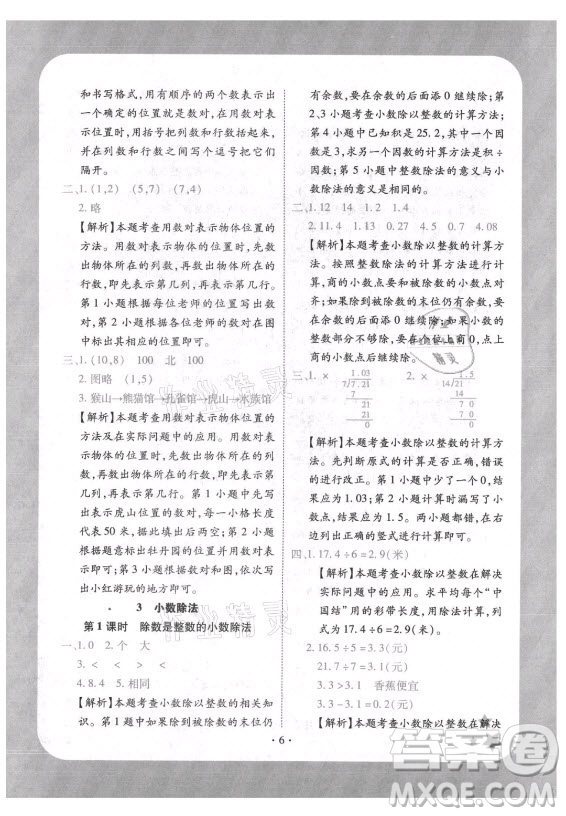 和书写格式，用有顺序的两个数表示出
一个确定的位置就是数对，用数对表
示位置时，用括号把列数和行数括起来，
并在列数和行数之间写个逗号把它们
隔开。
二、1.(1,2) (5,7) (7,4)
2.略
【解析】本题考查用数对表示物体位置的
方法。用数对表示物体的位置时，先数
出物体所在的列数，再数出物体所在的
行数，即先表示第几列，再表示第几行。
第1小题根据每位老师的位置写出数
对，第2小题根据老师的数对在图中
标出具体位置即可。
三、1.(10,8) 100 北 100
2.图略 (1,5)
3.猴山→熊猫馆→孔雀馆→虎山→水族馆
【解析】本题考查用数对表示物体位置的
方法及在实际问题中的应用。用数对表
示物体的位置时，先数出物体所在的列
数，再数出物体所在的行数，即先表示第
几列，再表示第几行，每一小格长度
代表50米，据此填出后两空；第2小题
根据题意标出牡丹园的位置，并写出数
对；第3小题根据所给的数对依次写出
小红游玩的地方即可。
3 小数除法
第1课时 除数是整数的小数除法
一、1.0 2.个 大
3.< < > <
4.8.4 5.相同
【解析】本题考查小数除以整数的相关知
识。第1小题中如果除到被除数的末位仍
有余数，要在余数的后面添0继续除；第
2,3小题考查小数除以整数的计算方法；
第4小题中已知积是25.2，其中一个因
数是3，求另一个因数的计算方法是用
除法；第5小题中整数除法的意义与小
数除法的意义是相同的。
二、1.12 14 1.2 1.4
2.118 1.13 0.27 0.75 4.08
【解析】本题考查小数除以整数的计算方
法。按照整数除法的计算方法进行计
算，商的小数点要和被除数的小数点对
齐；如果除到被除数的末位仍有余数，要
在余数的后面添0继续除。如果小数的
整数部分不够除，要在个位上商0，点上
小数点后继续除。
三、1.×
1.03
7/7.21
7
21
21
0
2.×
1.5
14/21
14
70
70
0
【解析】本题考查小数除以整数的计算方
法。先判断原式的计算是否正确，错误
的进行改正。第1小题计算错误，结果
应为1.03；第2小题计算时漏写了小数
点，结果应为1.5。两小题都错，在横线
上写出正确的竖式计算即可。
四、1.17.4÷6=2.9(米)
【解析】本题考查小数除以整数在解决
实际问题中的应用。求平均每个“中国
结”用的米数用除法计算，列式为
17.4÷6=2.9(米)。
2.16.5÷5=3.3(元)
21.7÷7=3.1(元)
3.3>3.1 香蕉便宜
3.3-3.1=0.2(元)
【解析】本题考查小数除以整数在解决
·6·
作业精灵
作业精灵
答案圈
MXQE.COM